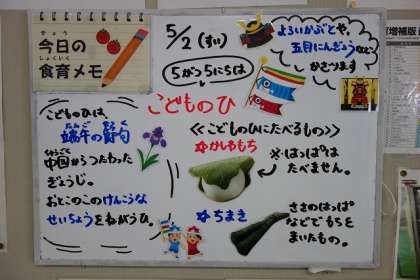 きょう
今日の
しょくいく
食育メモ
5/2(すい)
よろいかぶとや、
五月にんぎょうなど
かざります
5がつ5にちは
こどものひ
こどものひは、
たんご せっく
端午の節句
ちゅうごく
中国からつたわった
ぎょうじ。
おとこのこのけんこうな
せいちょうをねがうひ。
≪こどものひにたべるもの≫
☆かしわもち
※はっぱは
たべません。
☆ちまき
ささのはっぱ
などでもちを
まいたもの。
増補版